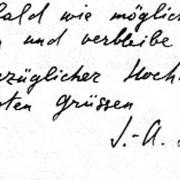 bald wie möglich
und verbleibe
züglicher Hoch
ten grüssen
J.-A.